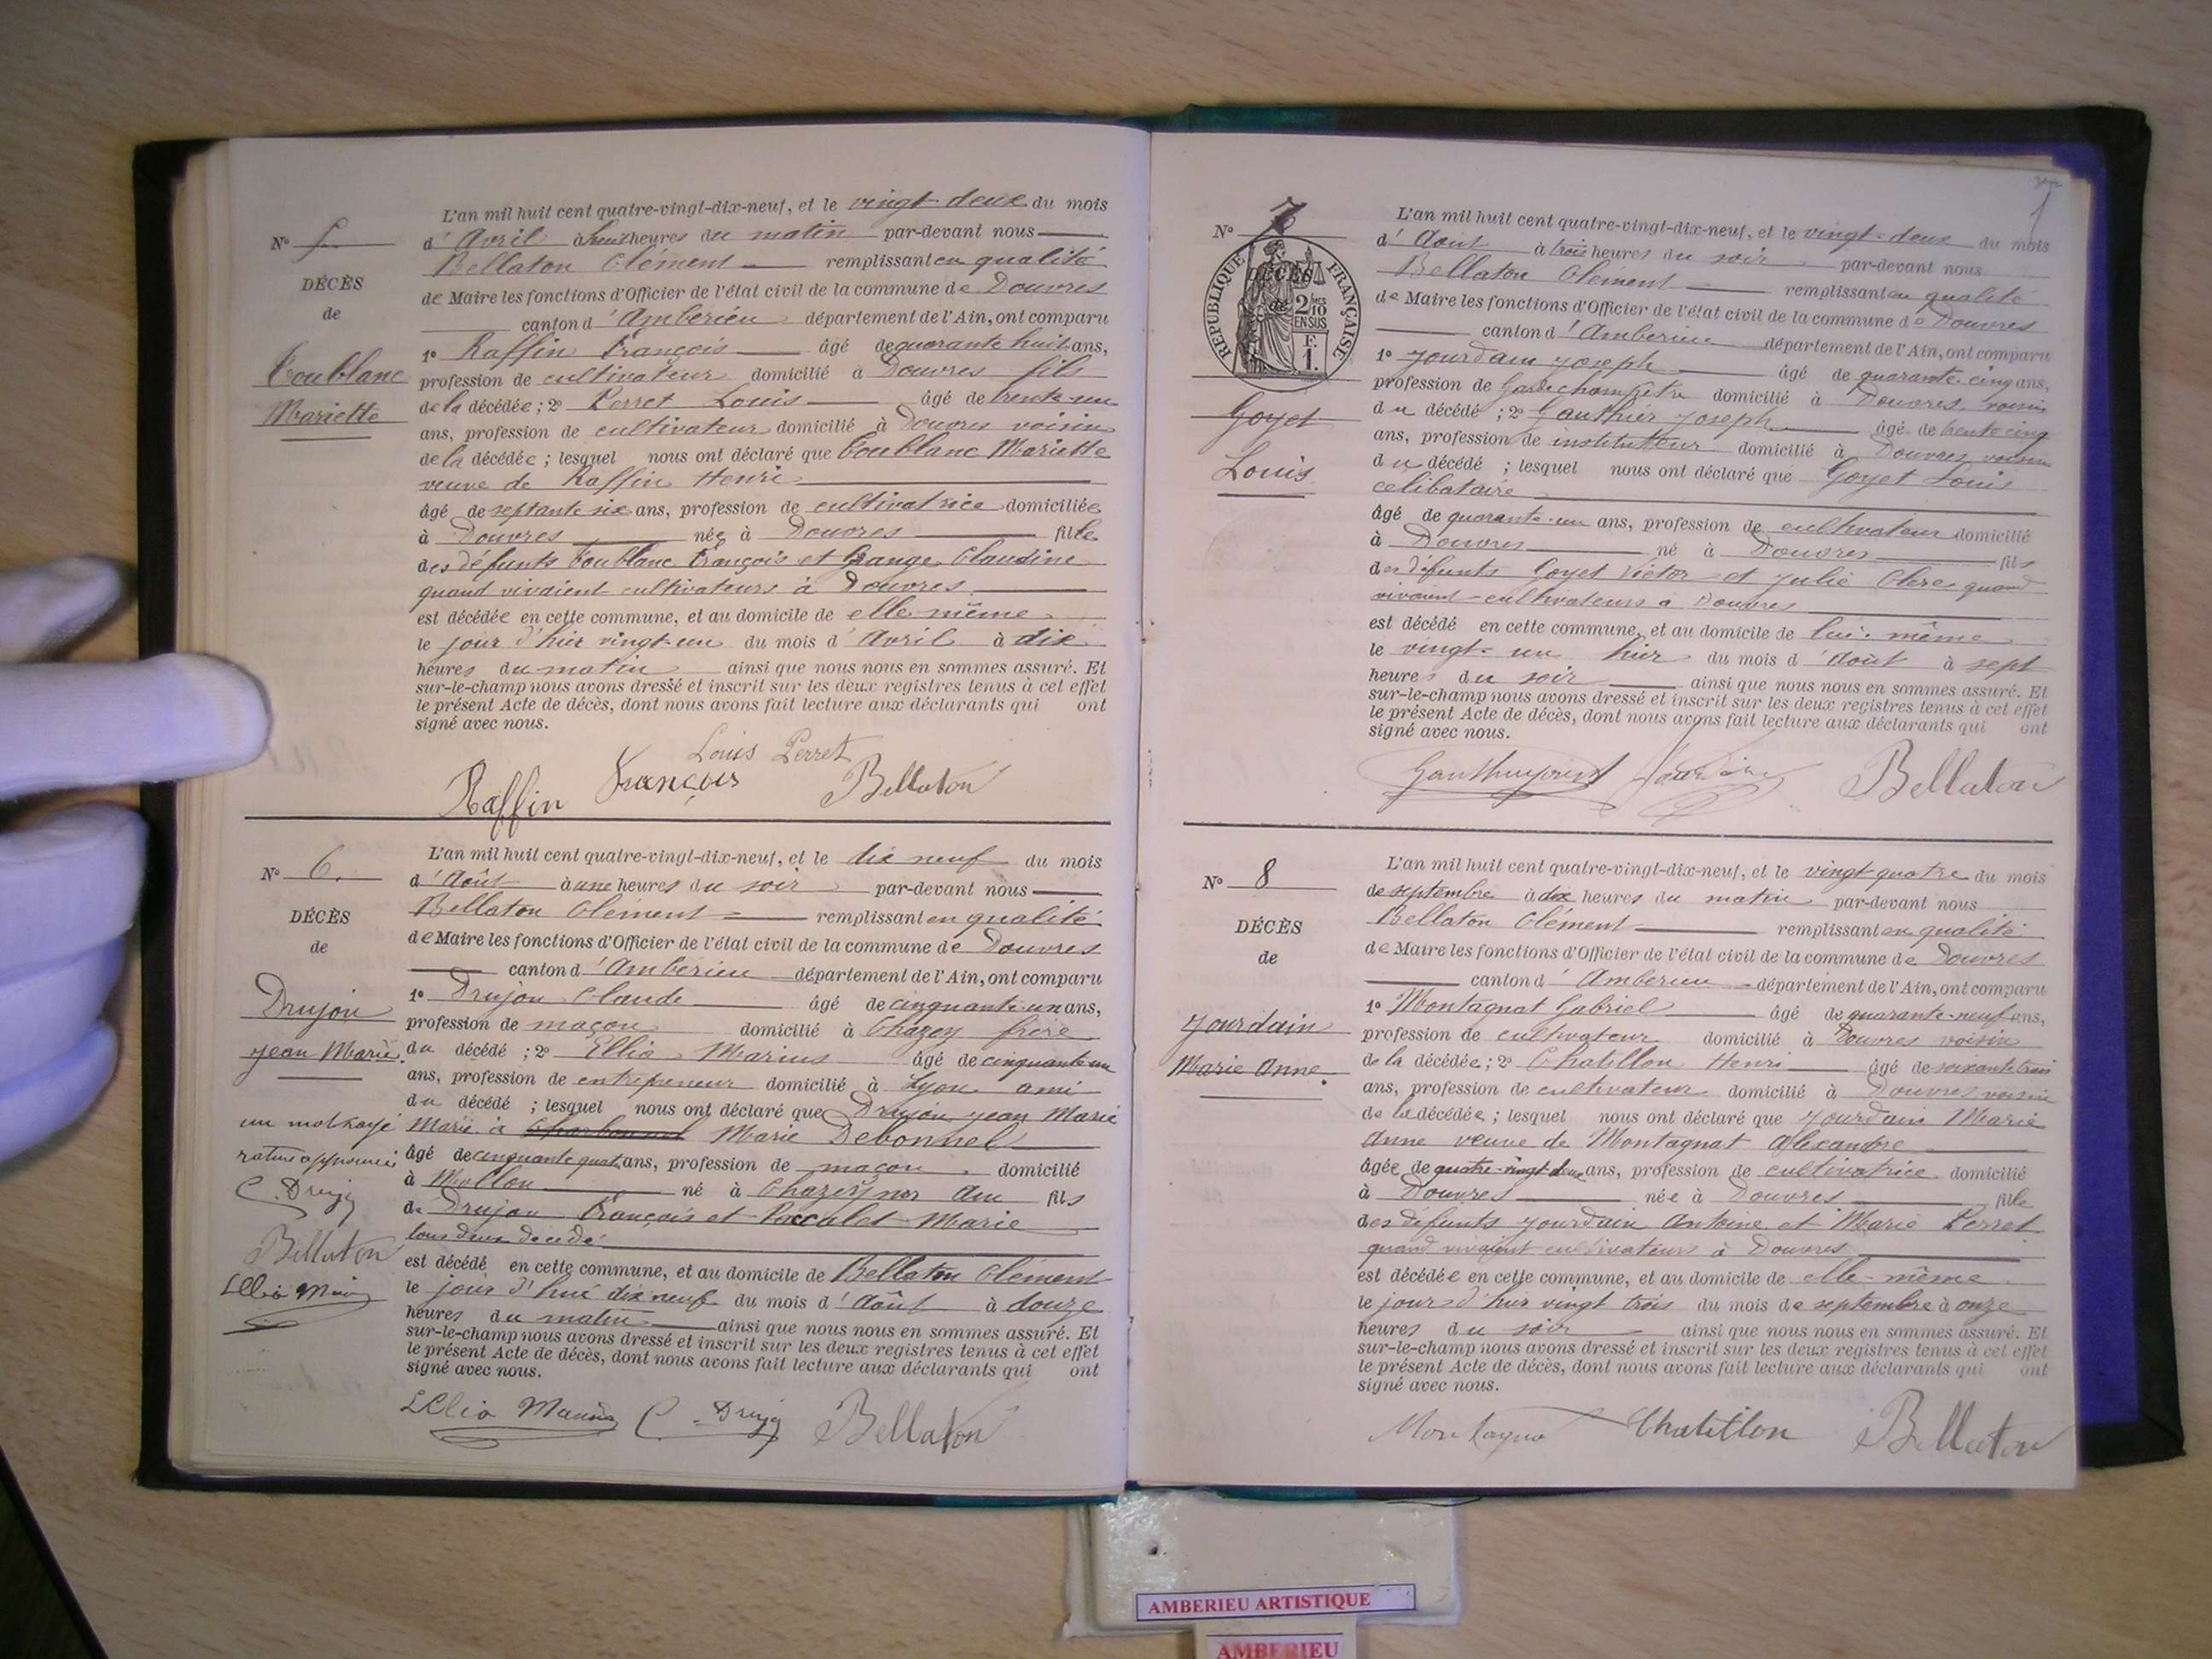 L'an mil huit cent quatre-vingt-dix-neuf, et le vingt-deux du mois
N° 5
d'Avril à huit heures du matin par-devant nous
Bellaton Clément remplissant en qualité
DÉCÈS
de
de Maire les fonctions d'Officier de l'état civil de la commune de Douvres
canton d'Ambérieu département de l'Ain, ont comparu
Toublanc
Mariette
1° Raffin François âgé de quarante huit ans,
profession de cultivateur domicilié à Douvres fils
de la décédée ; 2° Perret Louis âgé de trente-un
ans, profession de cultivateur domicilié à Douvres voisin
de la décédée ; lesquel nous ont déclaré que Toublanc Mariette
veuve de Raffin Henri
âgé de septante six ans, profession de cultivatrice domiciliée
à Douvres née à Douvres fille
des défunts Toublanc François et Grange Claudine
quand vivaient cultivateurs à Douvres
est décédée en cette commune, et au domicile de elle même
le jour d'hier vingt-un du mois d'Avril à dix
heures du matin ainsi que nous nous en sommes assuré. Et
sur-le-champ nous avons dressé et inscrit sur les deux registres tenus à cet effet
le présent Acte de décès, dont nous avons fait lecture aux déclarants qui ont
signé avec nous.
Louis Perret
Raffin François Bellaton
L'an mil huit cent quatre-vingt-dix-neuf, et le dix neuf du mois
N° 6.
d'Août à une heures du soir par-devant nous
Bellaton Clément remplissant en qualité
DÉCÈS
de
de Maire les fonctions d'Officier de l'état civil de la commune de Douvres
canton d'Ambérieu département de l'Ain, ont comparu
Drujon
Jean Marie.
1° Drujon Claude âgé de cinquante-un ans,
profession de maçon domicilié à Chazey frère
du décédé ; 2° Ellia Marius âgé de cinquante un
ans, profession de entrepreneur domicilié à Lyon ami
du décédé ; lesquel nous ont déclaré que Drujon Jean Marie
Marié à Charbonnel Marie Debonnel
un mot rayé
rature approuvée
C. Drujon
Bellaton
Ellia Marius
âgé de cinquante quat. ans, profession de maçon domicilié
à Mollon né à Chazey sur Ain fils
de Drujon François et Paccalet Marie
tous deux décédé
est décédé en cette commune, et au domicile de Bellaton Clément
le jour d'hui dix neuf du mois d'Août à douze
heures du matin ainsi que nous nous en sommes assuré. Et
sur-le-champ nous avons dressé et inscrit sur les deux registres tenus à cet effet
le présent Acte de décès, dont nous avons fait lecture aux déclarants qui ont
signé avec nous.
Ellia Marius C. Drujon Bellaton
L'an mil huit cent quatre-vingt-dix-neuf, et le vingt-deux du mois
N° 7
d'Août à trois heures du soir par-devant nous
Bellaton Clément remplissant en qualité
RÉPUBLIQUE FRANÇAISE
DÉCÈS
de
2/10
EN SUS
F.
1.
de Maire les fonctions d'Officier de l'état civil de la commune de Douvres
canton d'Amberieu département de l'Ain, ont comparu
Goyet
Louis
1° Jourdain Joseph âgé de quarante-cinq ans,
profession de Garde champêtre domicilié à Douvres, voisin
du décédé ; 2° Gauthier Joseph âgé de trente cinq
ans, profession de instituteur domicilié à Douvres voisin
du décédé ; lesquel nous ont déclaré que Goyet Louis
celibataire
âgé de quarante-un ans, profession de cultivateur domicilié
à Douvres né à Douvres fils
des défunts Goyet Victor et Julie Clere quand
vivaient cultivateurs à Douvres
est décédé en cette commune, et au domicile de lui-même
le vingt-un hier du mois d'Août à sept
heures du soir ainsi que nous nous en sommes assuré. Et
sur-le-champ nous avons dressé et inscrit sur les deux registres tenus à cet effet
le présent Acte de décès, dont nous avons fait lecture aux déclarants qui ont
signé avec nous.
Jourdain Bellaton
L'an mil huit cent quatre-vingt-dix-neuf, et le vingt quatre du mois
N° 8
de septembre à dix heures du matin par-devant nous
Bellaton Clément remplissant en qualité
DÉCÈS
de
de Maire les fonctions d'Officier de l'état civil de la commune de Douvres
canton d'Amberieu département de l'Ain, ont comparu
Jourdain
Marie Anne.
1° Montagnat Gabriel âgé de quarante-neuf ans,
profession de cultivateur domicilié à Douvres voisin
de la décédée ; 2° Chatillon Henri âgé de soixante trois
ans, profession de cultivateur domicilié à Douvres voisin
de la décédée ; lesquel nous ont déclaré que Jourdain Marie
Anne veuve de Montagnat Alexandre
âgée de quatre-vingt deux ans, profession de cultivatrice domicilié
à Douvres née à Douvres fille
des défunts Jourdain Antoine et Marie Perret
quand vivaient cultivateurs à Douvres
est décédée en cette commune, et au domicile de elle-même
le jour d'hier vingt trois du mois de septembre à onze
heures du soir ainsi que nous nous en sommes assuré. Et
sur-le-champ nous avons dressé et inscrit sur les deux registres tenus à cet effet
le présent Acte de décès, dont nous avons fait lecture aux déclarants qui ont
signé avec nous.
Montagna Chatillon Bellaton
AMBERIEU ARTISTIQUE
AMBERIEU